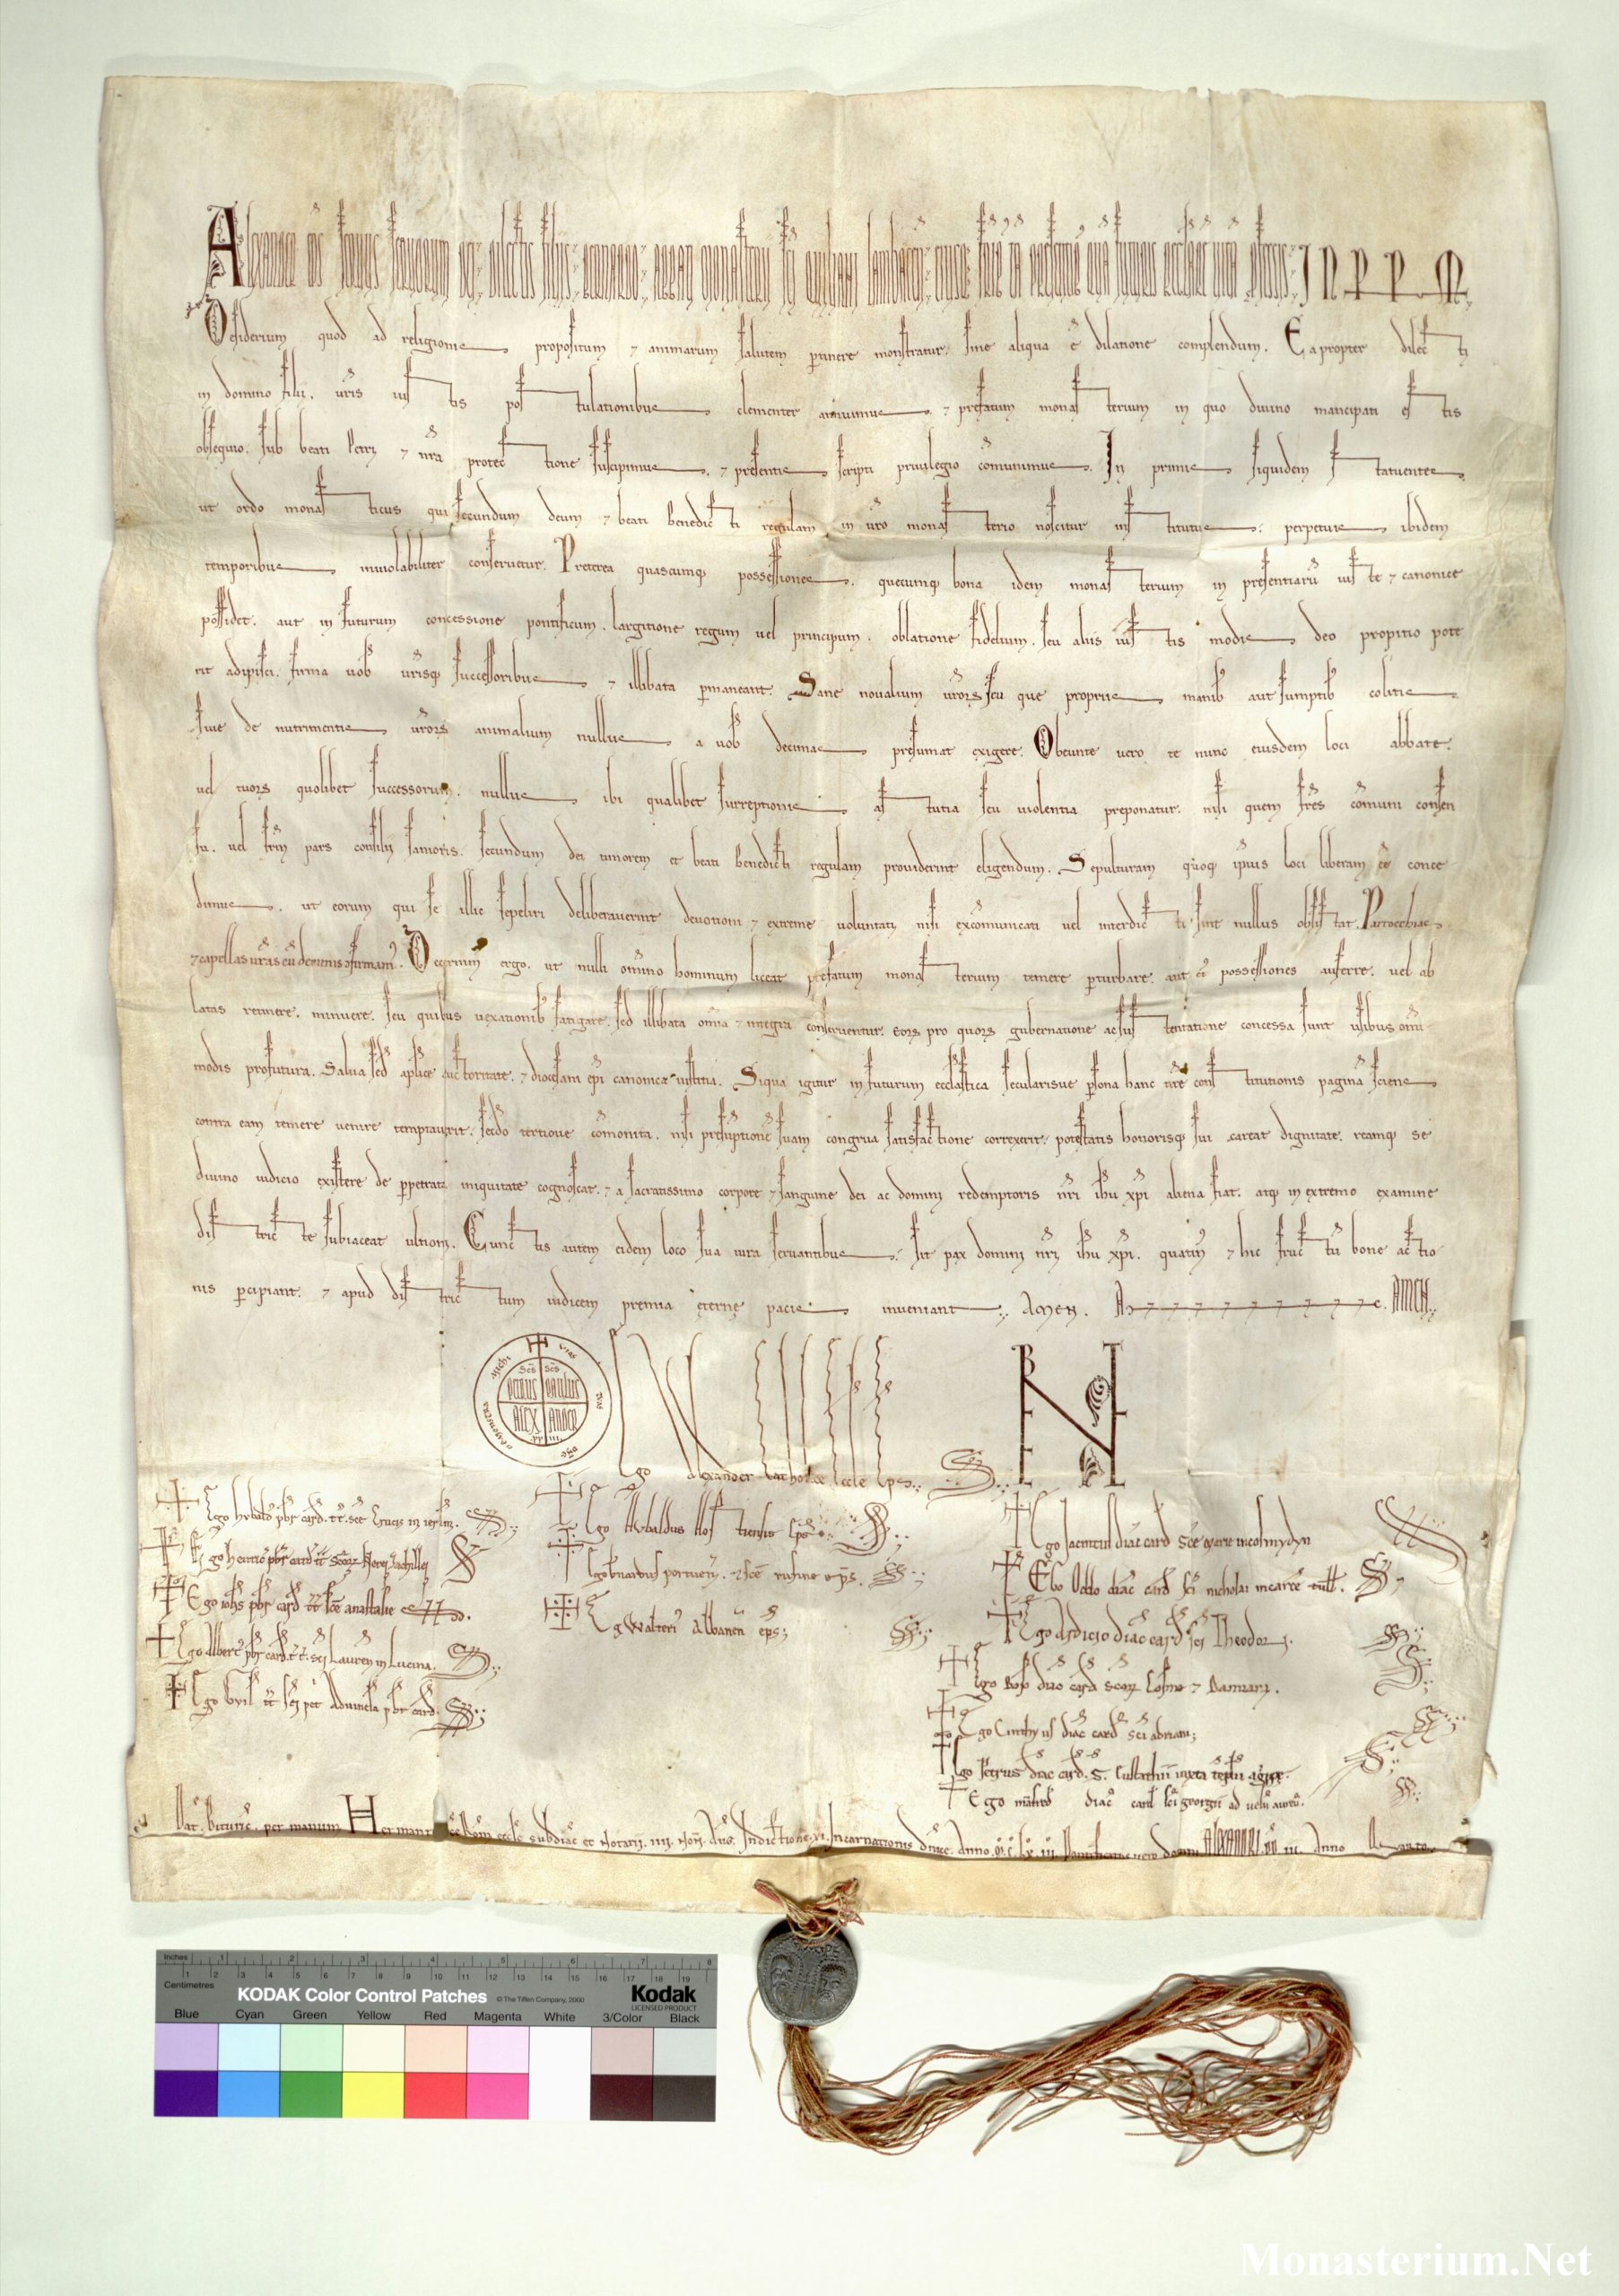 Alexander eps seruus seruorum dei. dilectis filiis. Bernardo. abbati monasterii sci Quiliani Lambacen. eiusq fribz tā presentibz quā futuris regularē uitā pfessis. IN P P M
Desiderium quod ad religionis propositum ⁊ animarum salutem ptinere monstratur. sine aliqua ē dilatione complendum. Eapropter dilecti
in domino filii. uris iustis postulationibus clementer annuimus. ⁊ prefatum monasterium in quo diuino mancipati estis
obsequio. sub beati Petri ⁊ nra protectione suscipimus. ⁊ presentis scripti priuilegio cōmunimus. In primis siquidem statuentes
ut ordo monasticus qui secundum deum ⁊ beati Benedicti regulam in uro monasterio noscitur institutus. perpetuis ibidem
temporibus inuiolabiliter conseruetur. Preterea quascumq possessiones. quecumq bona idem monasterium in presentiarū iuste ⁊ canonice
possidet. aut in futurum concessione pontificum. largitione regum uel principum. oblatione fidelium. seu aliis iustis modis deo propitio pote
rit adipisci. firma uob urisq successoribus ⁊ illibata pmaneant. Sane noualium urorꝝ seu que propriis manib aut sumptib colitis
siue de nutrimentis urorꝝ animalium nullus a uob decimas presumat exigere. Obeunte uero te nunc eiusdem loci abbate.
uel tuorꝝ quolibet successorum. nullus ibi qualibet surreptionis astutia seu uiolentia preponatur. nisi quem fres cōmuni consen
su. uel frm pars consilii sanioris. secundum dei timorem et beati Benedicti regulam prouiderint eligendum. Sepulturam quoq ipsius loci liberam eē conce
dimus. ut eorum qui se illic sepeliri deliberauerint deuotioni ⁊ extreme uoluntati nisi excōmunicati uel interdicti sint nullus obsistat. Parrochias
⁊ capellas uras cū decimis ofirmam. Decernim ergo. ut nulli omino hominum liceat prefatum monasterium temere pturbare. aut ei possessiones auferre. uel ab
latas retinere. minuere. seu quibus uexationib fatigare. sed illibata omia ⁊ integra conseruentur. eorꝝ pro quorꝝ gubernatione ac sustentatione concessa sunt usibus omi
modis profutura. Salua sed aplice auctoritate. ⁊ diocesani epi canonica iustitia. Siqua igitur in futurum ecclastica secularisue psona hanc nre constitutionis paginā sciens
contra eam temere uenire temptauerit. secdo tertioue cōmonita. nisi presuptionē suam congrua satisfactione correxerit. potestatis honorisq sui careat dignitate. reamq se
diuino iudicio existere de ppetrata iniquitate cognoscat. ⁊ a sacratissimo corpore ⁊ sanguine dei ac domini redemptoris nri ihu xpi aliena fiat. atq in extremo examine
districte subiaceat ultioni. Cunctis autem eidem loco sua iura seruantibus. sit pax domini nri ihu xpi. quatin ⁊ hic fructū bone actio
nis pcipiant. ⁊ apud districtum iudicem premia eterne pacis inueniant. Amen. A⁊⁊⁊⁊⁊⁊⁊⁊⁊⁊. AMEN.
✝ uias tuas dne demonstra michi
Scs Petrus Scs Paulus Alexander PP III
Ego Alexander catholice eccle eps. SS.
✝ Ego hubald pbr card. tt. sce Crucis in ierlm. SS.
✝ Ego henric pbr card tt scorꝝ Nerei ⁊ achillei SS
✝ Ego iohs pbr card tt sce anastasie SS.
✝ Ego Albert pbr card. tt. sci Laurentii in Lucina. SS.
✝ Ego Guil tt sci petri Aduincla pbr card. SS.
✝ Ego Hubaldus Hostiensis eps SS.
✝ Ego bnardus portuen. ⁊ sce rufine eps. SS.
✝ Ego Walteri Albanen eps; SS.
✝ Ego Jacinctus diac card sce Marie incosmydyn SS
✝ Ego Oddo diac card sci nicholai incarce tull. SS.
✝ Ego Ardicio diac card sci Theodori. SS.
✝ Ego Boso diac card scorꝝ Cosme ⁊ Damiani. SS.
✝ Ego Cinthyus diac card sci adriani; SS.
✝ Ego Petrus diac card. S. Eustathii iuxta teplū agrippe. SS.
✝ Ego manfred diac card sci georgii ad uelū aureū. SS.
Dat. Bituric. per manum Hermanni sce Rom eccle subdiac et Notarii. iiii. Non. Aug. Indictione. xi. Incarnationis dnice. Anno. M. C. Lx. iii. Pontificatus uero domni ALEXANDRI. PP. iii. Anno Quarto
Inches 1 2 3 4 5 6 7 8
Centimetres 1 2 3 4 5 6 7 8 9 10 11 12 13 14 15 16 17 18 19
KODAK Color Control Patches © The Tiffen Company, 2000 Kodak
LICENSED PRODUCT
Blue Cyan Green Yellow Red Magenta White 3/Color Black
Monasterium.Net